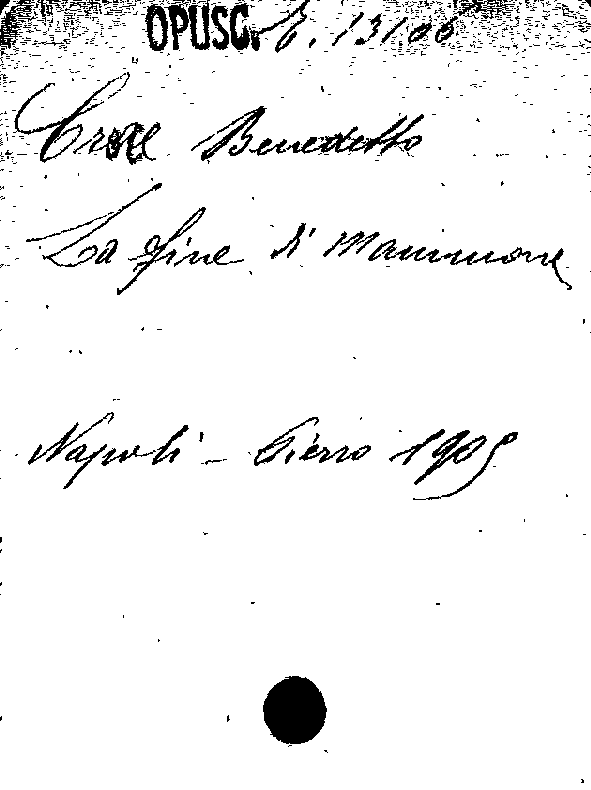 OPUSC. E. 13106
Croce Benedetto
La fine di Mammone
Napoli - Pierro 1905